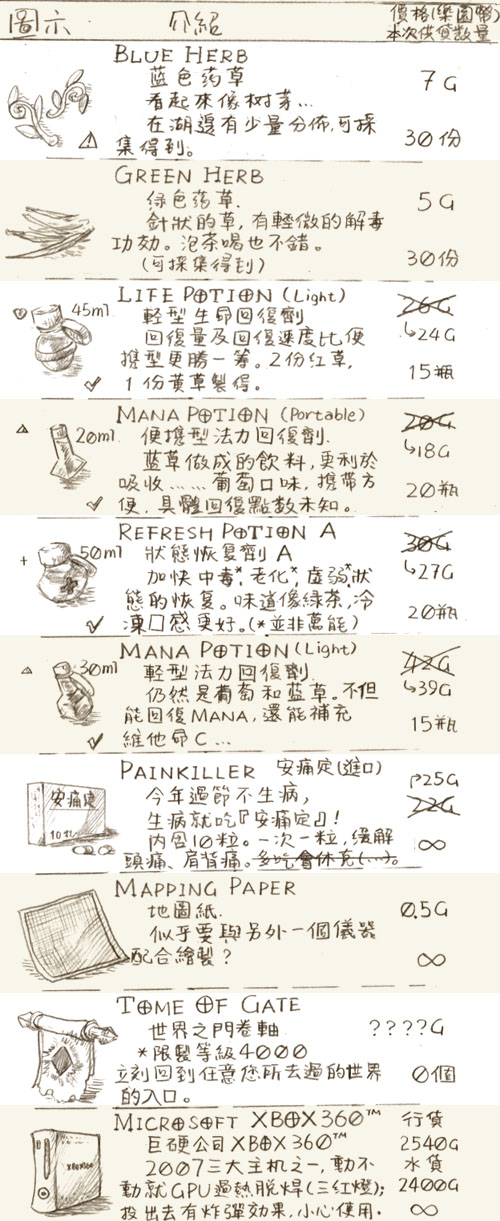 圖示 介紹 價格(樂園幣)
本次供貨數量
BLUE HERB
蓝色药草
看起來像树芽...
在湖邊有少量分佈,可採
集得到。
7G
30份
GREEN HERB
绿色药草.
針狀的草,有輕微的解毒
功効。泡茶喝也不錯。
(可採集得到)
5G
30份
LIFE POTION (Light)
45ml
輕型生命回復劑
回復量及回復速度比便
携型更勝一筹。2份红草,
1份黄草製得。
26G
↳24G
15瓶
MANA POTION (Portable)
20ml
便携型法力回復劑.
蓝草做成的飲料,更利於
吸收……葡萄口味,携帶方
便,具體回復點数未知。
20G
↳18G
20瓶
REFRESH POTION A
50ml
狀態恢复劑 A
加快中毒*,老化*,虚弱*狀
態的恢复。味道像緑茶,冷
凍口感更好。(*並非萬能)
30G
↳27G
20瓶
MANA POTION (Light)
30ml
輕型法力回復劑
仍然是葡萄和蓝草。不但
能回復MANA,還能補充
維他命C...
42G
↳39G
15瓶
PAINKILLER 安痛定(進口)
安痛定
10粒
今年過節不生病,
生病就吃『安痛定』!
内包10粒。一次一粒,缓解
頭痛、肩背痛。多吃會休克(...)。
25G
22G
∞
MAPPING PAPER
地圖紙.
似乎要與另外一個儀器
配合繪製?
0.5G
∞
TOME OF GATE
世界之門卷軸
*限製等級4000
立刻回到任意您所去過的世界
的入口。
????G
0個
MICROSOFT XBOX360™
XBOX360
巨硬公司XBOX360™
2007三大主机之一,動不
動就GPU過熱脱焊(三红燈);
投出去有炸彈効果,小心使用.
行貨
2540G
水貨
2400G
∞